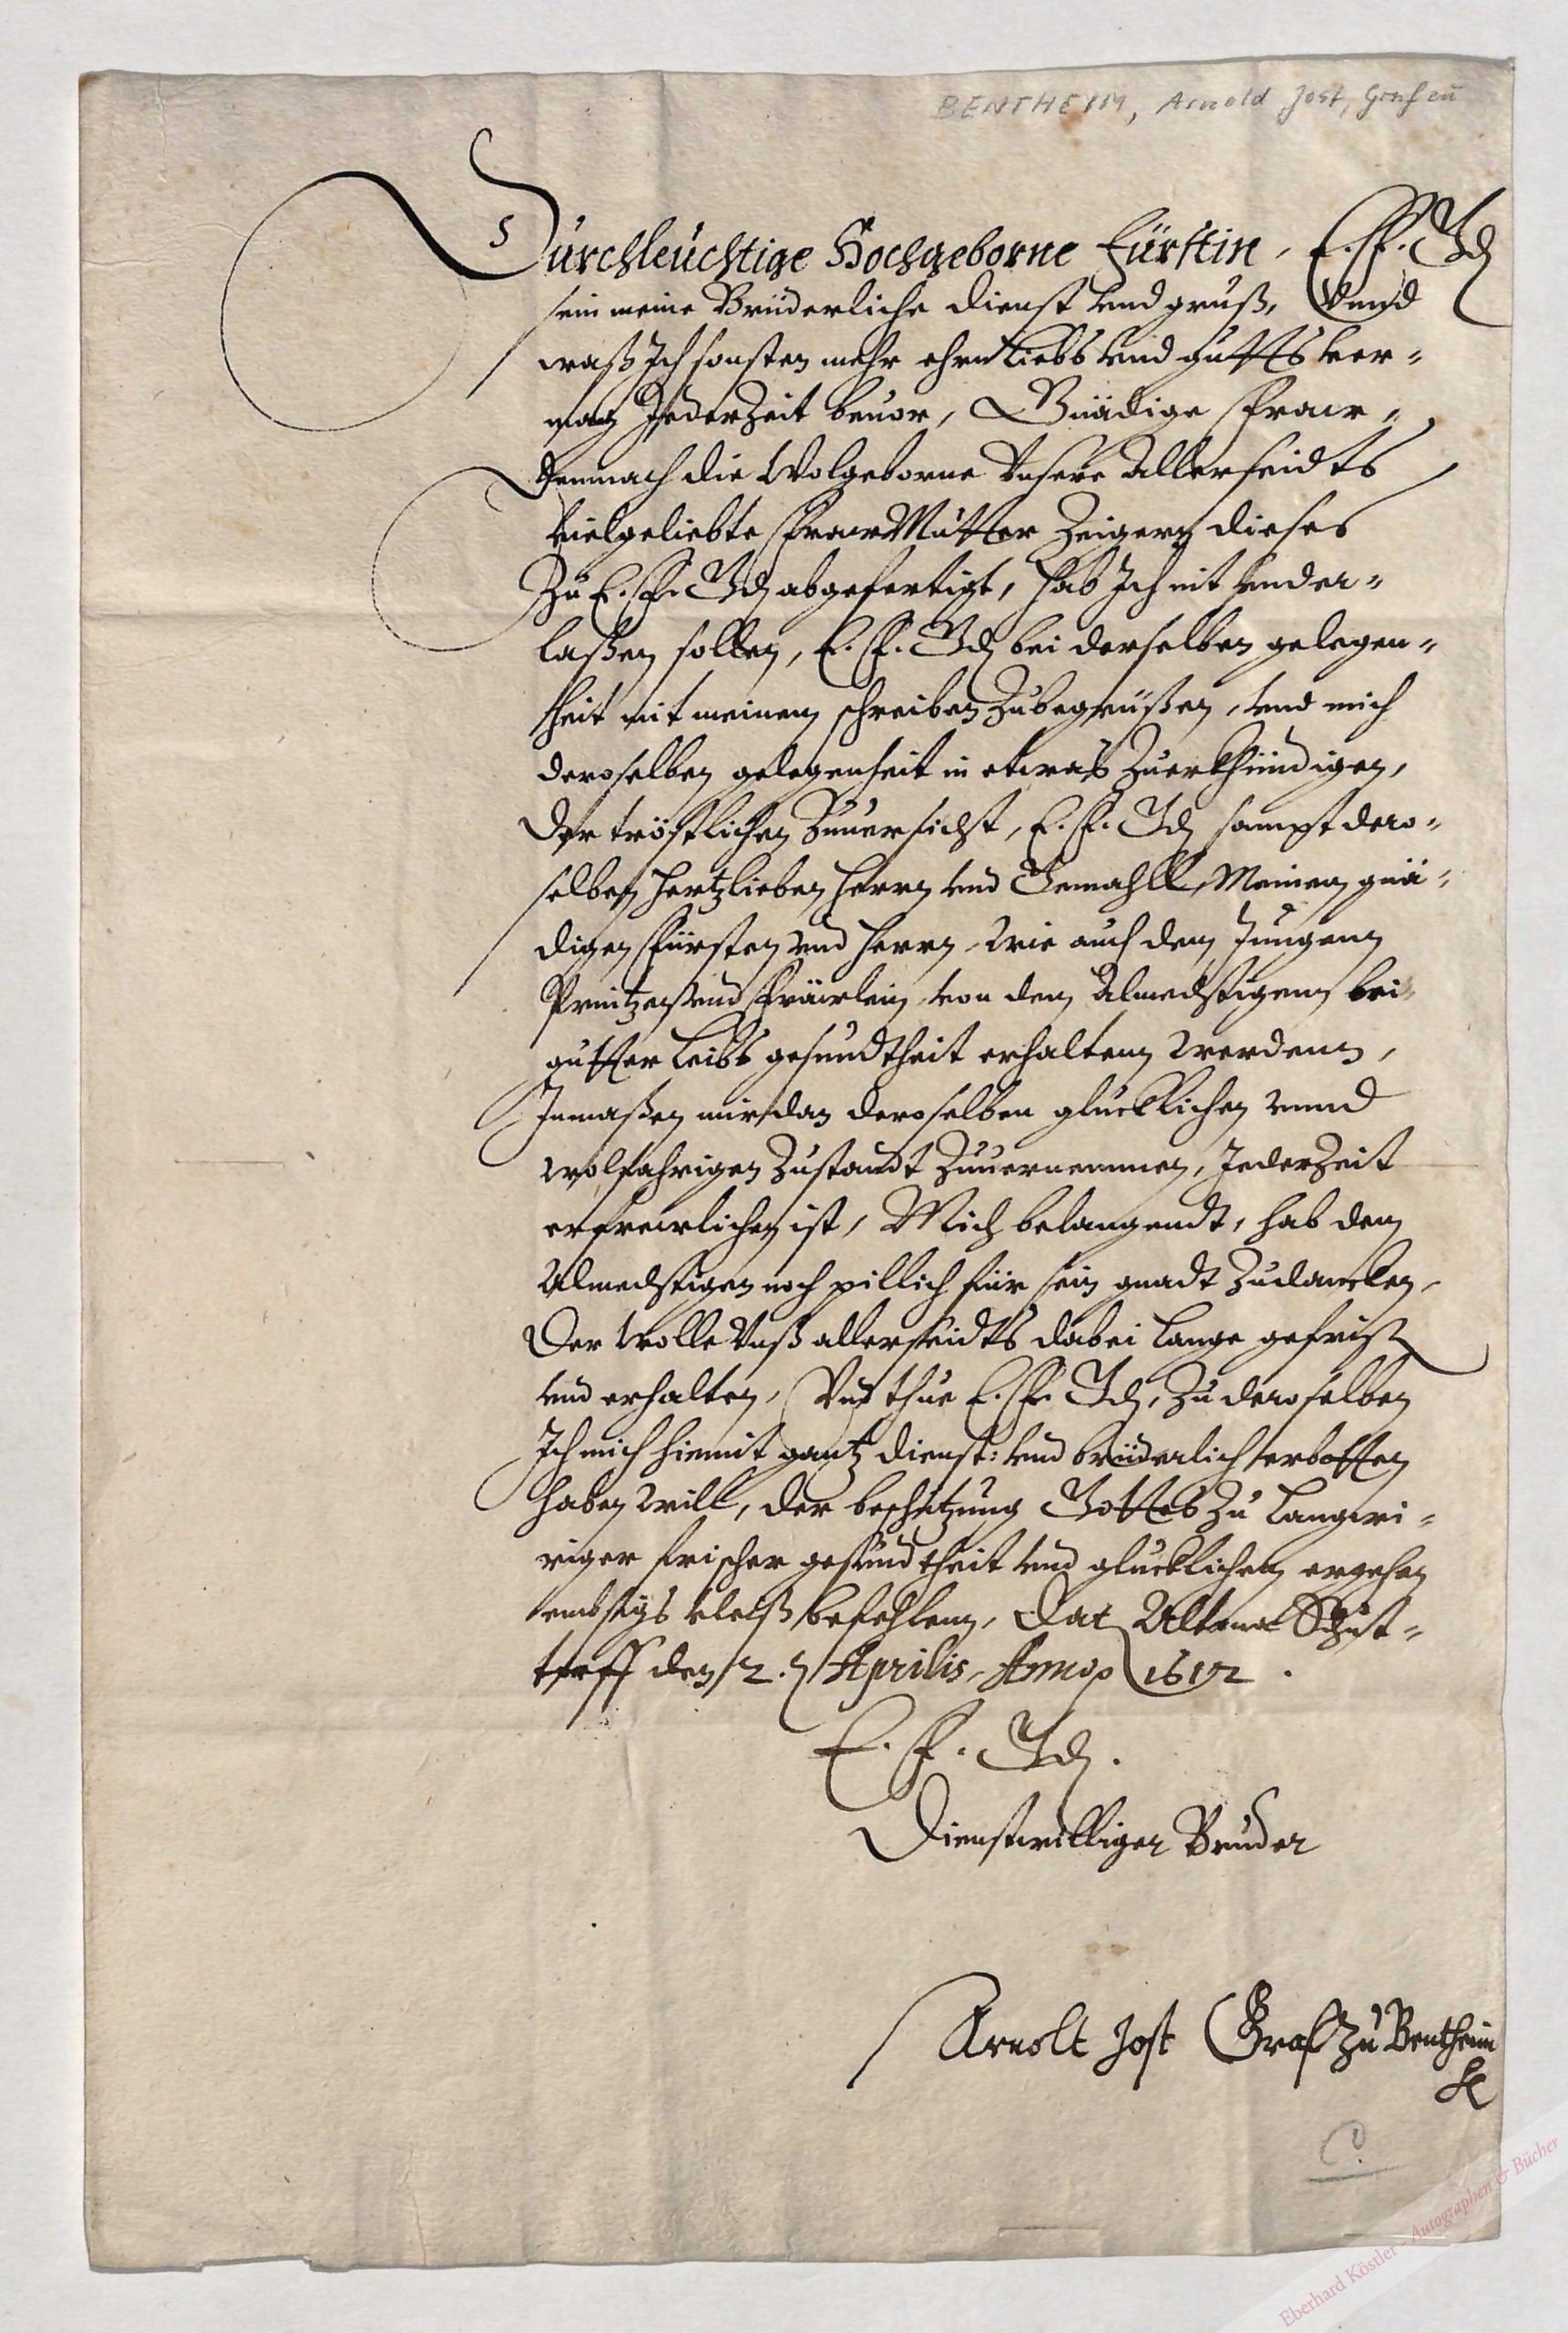 BENTHEIM, Arnold Jost, Graf zu
Durchleuchtige Hochgeborne Fürstin, E. F. Gd
sein meine Brüderliche dienst vnd gruß, Vnnd
waß Ich sonsten mehr ehrn liebs vnd gutts ver-
mag Jederzeit beuor, Gnädige Fraw,
Demnach die Wolgeborne Vnsere Allerseidts
vielgeliebte Fraw Mutter Zeigern dieses
Zu E. F. Gd abgefertigt, hab Ich nit vnder-
laßen sollen, E. F. Gd bei derselben gelegen-
heit mit meinem schreiben Zubegrüßen, vnd mich
deroselben gelegenheit in etwas Zuerkhündigen,
Der tröstlichen Zuuersicht, E. F. Gd sampt dero-
selben hertzlieben herrn vnd Gemahll, Meinem gnä-
digen Fürsten vnd herrn, Wie auch dem Jungen
Printzen vnd Fräwlein, von dem Almechtigenn bei
gutter Leibs gesundtheit erhaltenn werdenn,
Inmaßen mir dan deroselben glücklichen vnnd
wolfahrigen Zustandt Zuuernemmen, Jederzeit
erfrewlichen ist, Mich belangendt, hab dem
Almechtigen noch pillich für sein gnadt Zudancken,
Der wolle Vnß allerseidts dabei lange gefrist
vnd erhalten, Vnd thue E. F. Gd, Zu deroselben
Ich mich hiemit gantz dienst: vnd brüderlich erbotten
haben will, der beschützung Gottes Zu langwi-
riger frischer gesundtheit vnd glücklichem ergehen
embsigs vleiß befehlenn, Dat Altena Schüt-
torff den 2.n Aprilis, Anno 1612.
E. F. Gd.
Dienstwilliger Bruder
Arnolt Jost Graf zu Bentheim
Eberhard Köstler - Autographen & Bücher